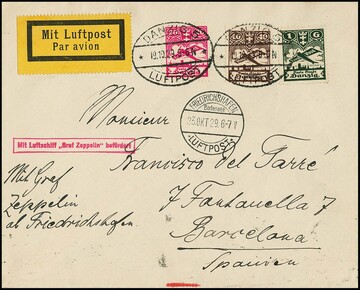 Mit Luftpost
Par avion
DANZIG 5
LUFTPOST
DANZIG 5
LUFTPOST
1 G
Danzig
FRIEDRICHSHAFEN
(Bodensee)
23.OKT 29.6-7 N
LUFTPOST
Monsieur
Mit Luftschiff „Graf Zeppelin" befördert
Francisco del Tarré
Mit Graf
Zeppelin
ab Friedrichshafen
7 Fontanella 7
Barcelona
Spanien